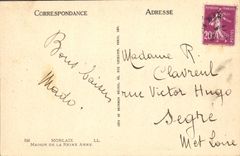 CORRESPONDANCE
ADRESSE
Bons baisers
Mado.
Madame R.
Clavreul
rue Victor Hugo
Segré
Met Loire
MORLAIX
LL
MAISON DE LA REINE ANNE.
20